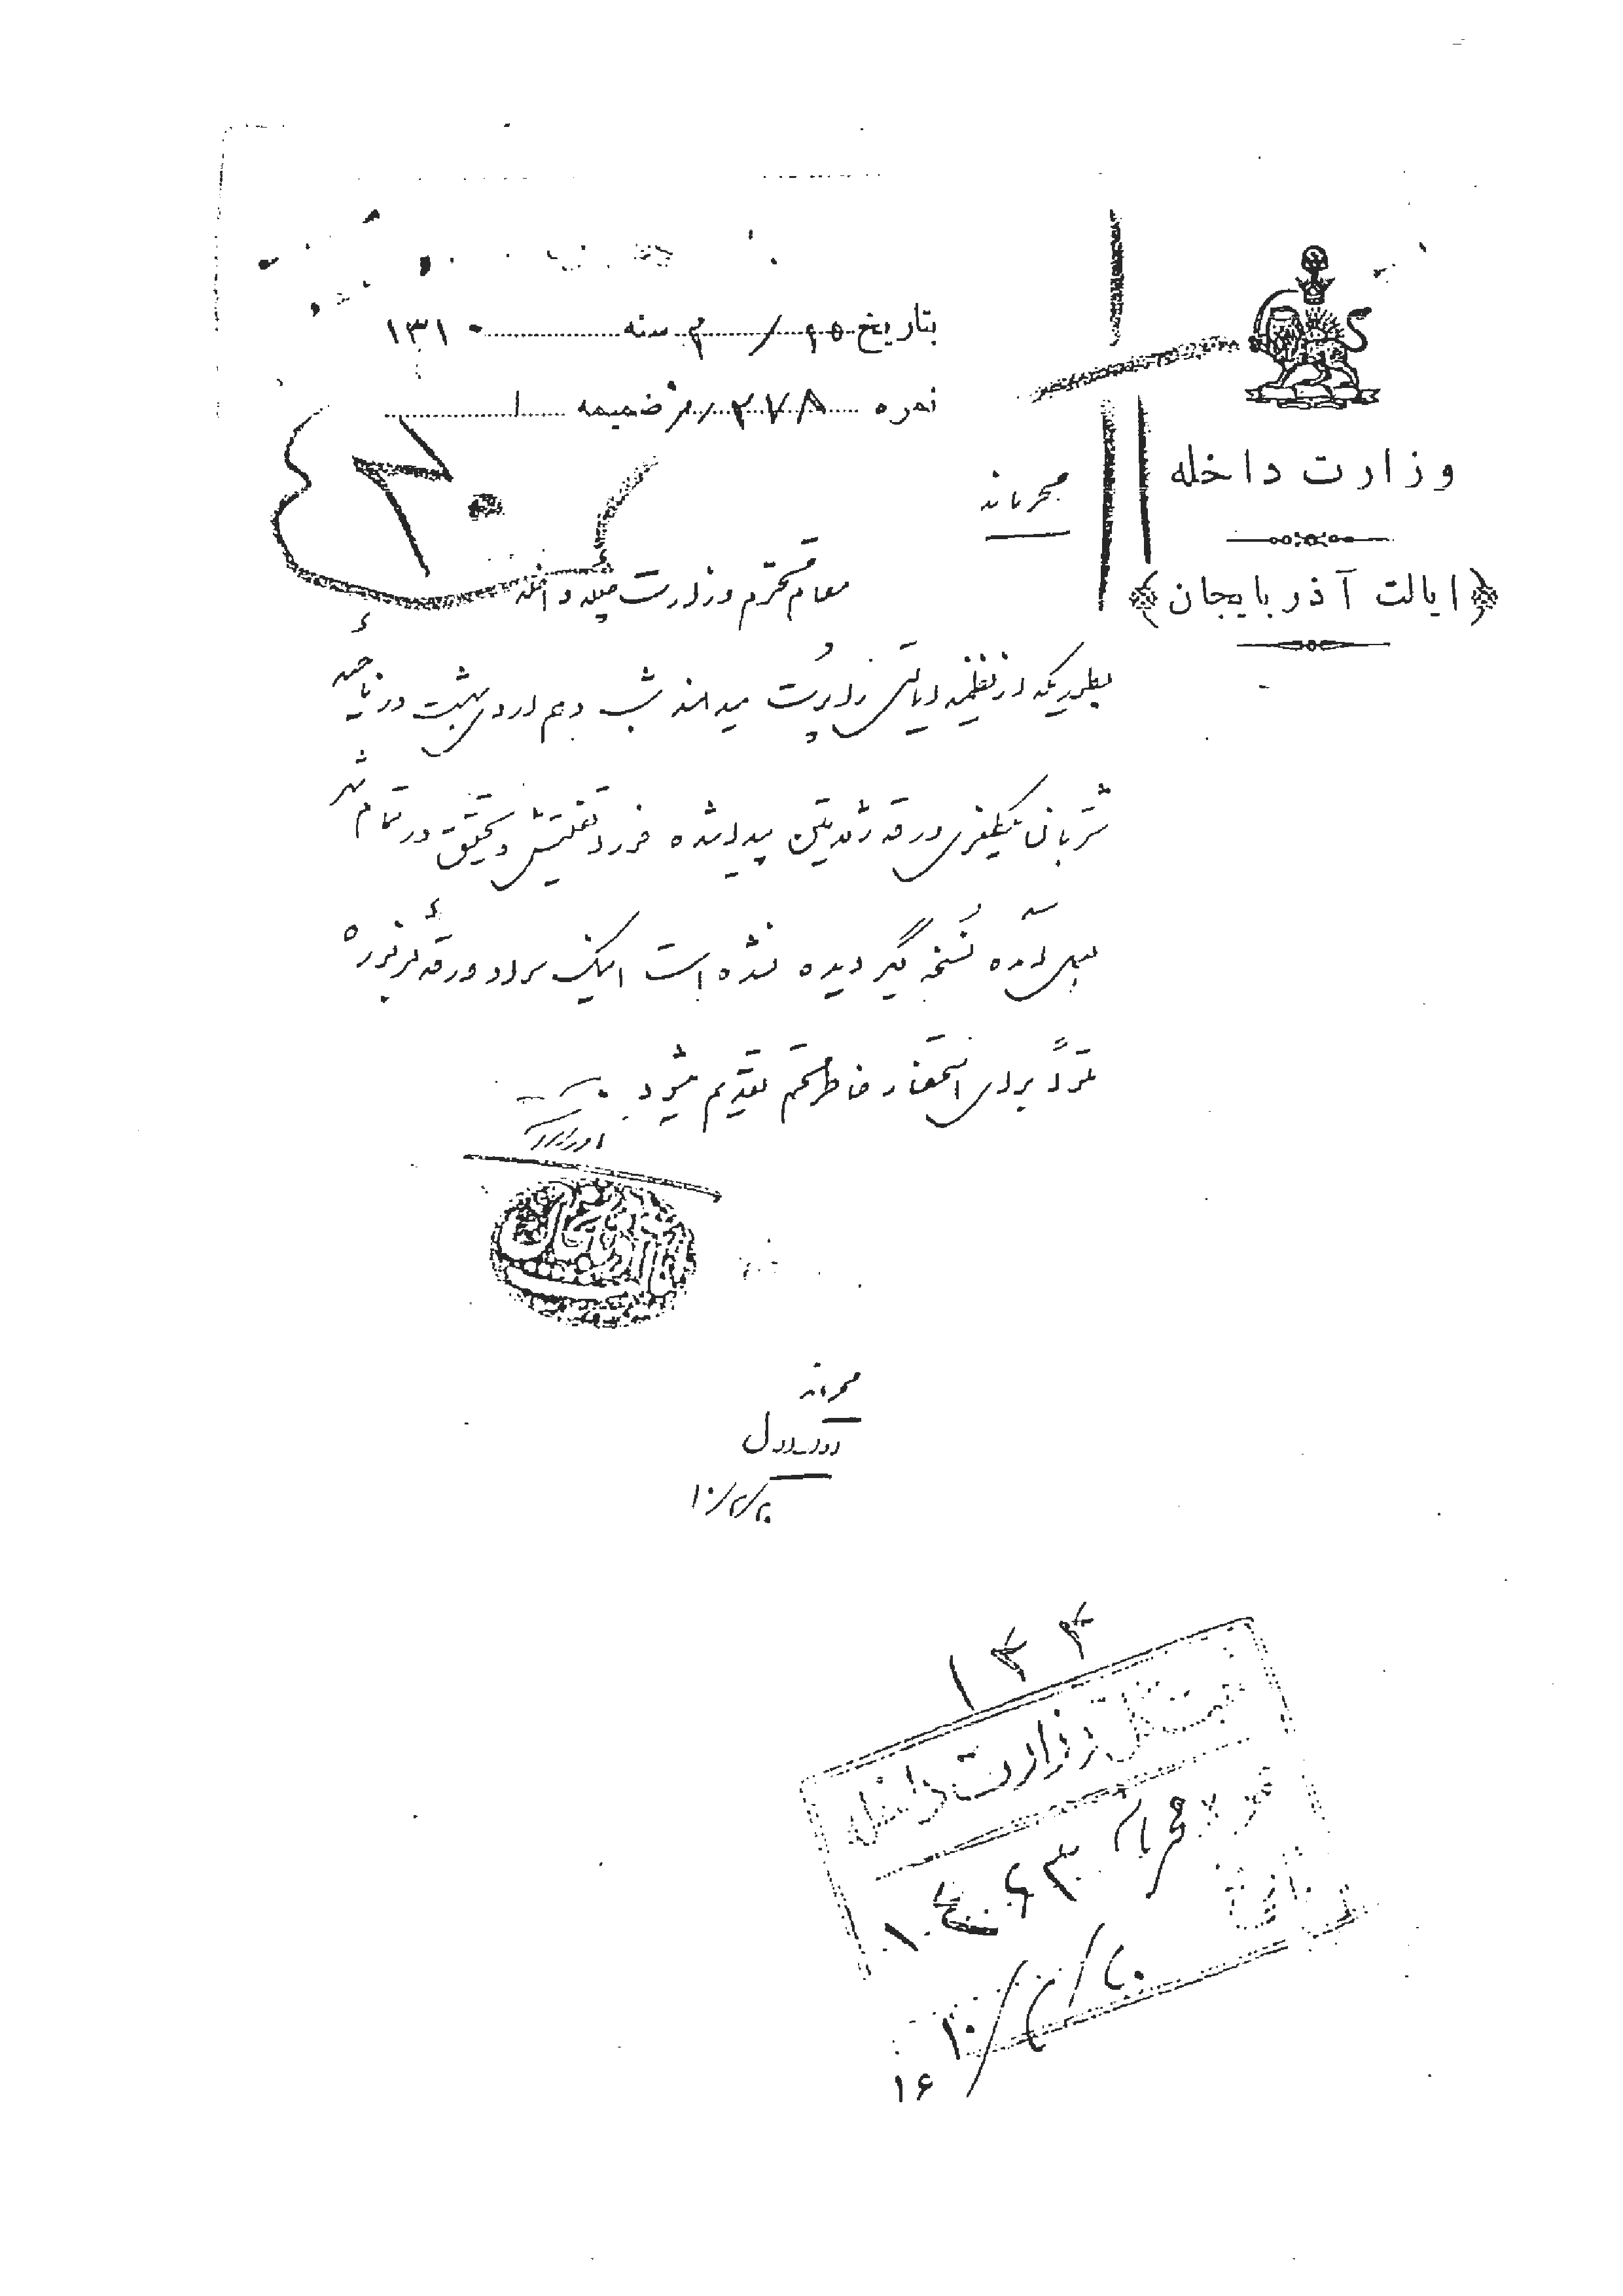 وزارت داخله
ایالت آذربایجان
بتاریخ ۱۵ / ۲ سنه ۱۳۱۰
نمره ۲۷۸ ضمیمه ۱
محرمانه
مقام محترم وزارت جلیله داخله
بطوریکه از نظمیه ایالتی راپرت میدهند شب دهم اردیبهشت در ناحیه
شتربان یکنفر ورقه ژلاتینی پیدا شده در تفتیش و تحقیق در تمام شهر
بعمل آمده نسخه دیگر دیده نشده است اینک سواد ورقه مزبوره
برای استحضار خاطر محترم تقدیم میشود
محرمانه
۱۰/۲/۲۰
ثبت کل وزارت داخله
نمره محرمانه
۱۰/۲/۲۰
۱۶